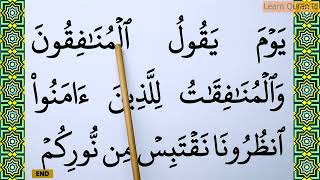 Learn Quran
يَوْمَ يَقُولُ ٱلْمُنَٰفِقُونَ
وَٱلْمُنَٰفِقَٰتُ لِلَّذِينَ ءَامَنُوا۟
ٱنظُرُونَا نَقْتَبِسْ مِن نُّورِكُمْ
END